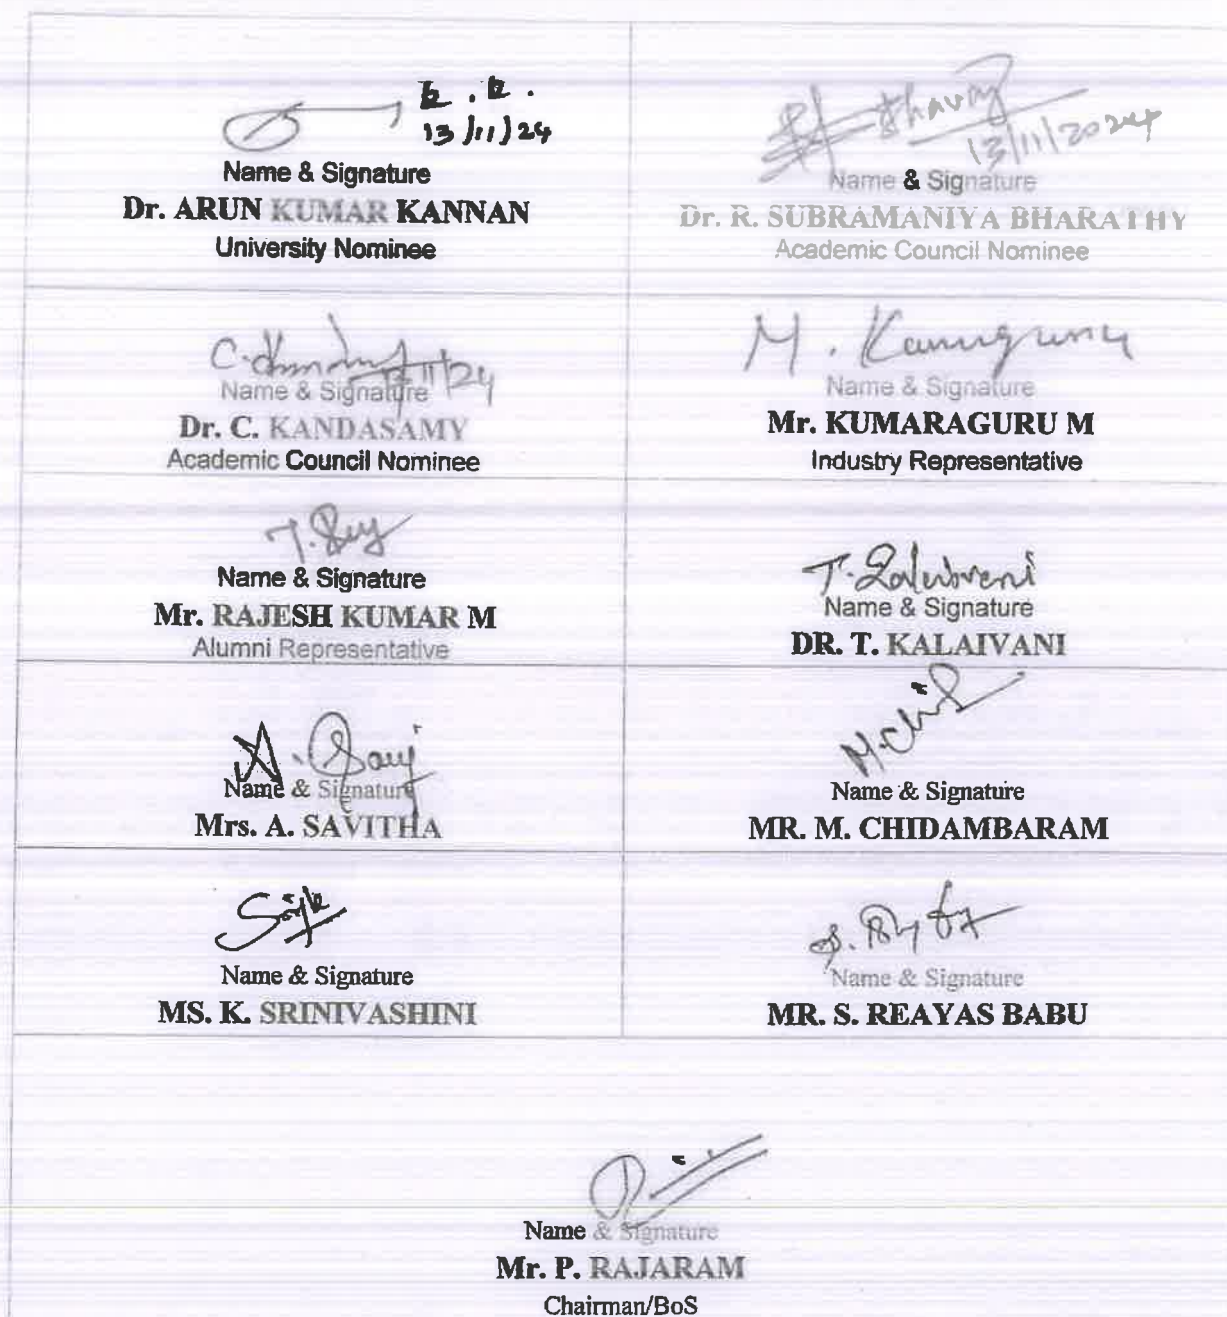 13/11/24
Name & Signature
Dr. ARUN KUMAR KANNAN
University Nominee
13/11/2024
Name & Signature
Dr. R. SUBRAMANIYA BHARATHY
Academic Council Nominee
Name & Signature
Dr. C. KANDASAMY
Academic Council Nominee
M. Kumaraguru
Name & Signature
Mr. KUMARAGURU M
Industry Representative
Name & Signature
Mr. RAJESH KUMAR M
Alumni Representative
T. Kalaivani
Name & Signature
DR. T. KALAIVANI
Name & Signature
Mrs. A. SAVITHA
M. Chid
Name & Signature
MR. M. CHIDAMBARAM
Name & Signature
MS. K. SRINIVASHINI
Name & Signature
MR. S. REAYAS BABU
Name & Signature
Mr. P. RAJARAM
Chairman/BoS